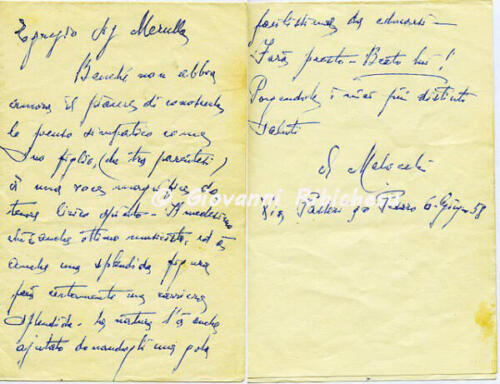 Egregio Sig Merulla
Benché non abbia
ancora il piacere di conoscerla
la penso simpatico come
Suo figlio, (che tra parentesi)
à una voce magnifica da
tenore lirico spinto - Il medesimo
anche ottimo musicista, ed à
anche una splendida figura
farà certamente una carriera
splendida. La natura l'à anche
aiutato donandogli una gola
facilissima da educarsi -
Farà presto - Beato lui!
Porgendole i miei più distinti
saluti
Melocchi
Via Passeri Pesaro 6 Giugno 58
© Giovanni